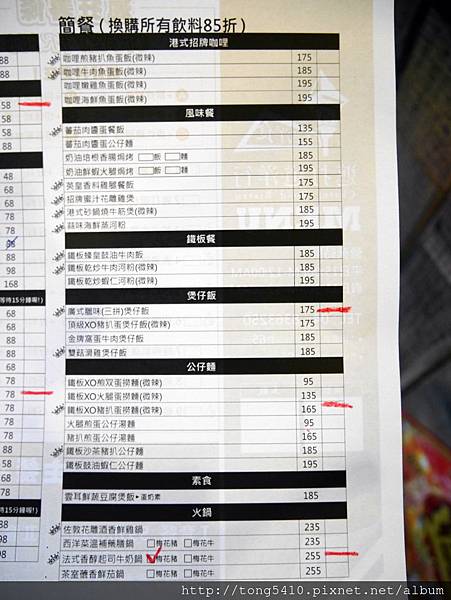 簡餐 ( 換購所有飲料85折 )
港式招牌咖哩
咖哩煎豬扒魚蛋飯(微辣) 175
咖哩牛肉魚蛋飯(微辣) 185
咖哩嫩雞魚蛋飯(微辣) 195
咖哩海鮮魚蛋飯(微辣) 195
風味餐
蕃茄肉醬蛋餐飯 135
蕃茄肉醬蛋公仔麵 155
奶油培根香腸焗烤 □飯 □麵 185
奶油鮮蝦火腿焗烤 □飯 □麵 195
英皇香料雞腿餐飯 175
招牌蜜汁花雕雞煲 175
港式砂鍋燒牛筋煲(微辣) 185
蒜味海鮮蒸河粉 195
鐵板餐
鐵板蠔皇鼓油牛肉飯 185
鐵板乾炒牛肉河粉(微辣) 185
鐵板乾炒蝦仁河粉(微辣) 195
煲仔飯
廣式臘味(三拼)煲仔飯 175
頂級XO豬扒蛋煲仔飯(微辣) 175
金牌窩蛋牛肉煲仔飯 185
雙菇滑雞煲仔飯 185
公仔麵
鐵板XO煎双蛋撈麵(微辣) 95
鐵板XO火腿蛋撈麵(微辣) 135
鐵板XO豬扒蛋撈麵(微辣) 165
火腿煎蛋公仔湯麵 95
豬扒煎蛋公仔湯麵 165
鐵板沙茶豬扒公仔麵 185
鐵板鼓油蝦仁公仔麵 195
素食
雲耳鮮蔬豆腐煲飯▸蛋奶素 185
火鍋
佐敦花雕酒香鮮雞鍋 235
西洋菜溫補藥膳鍋 □梅花豬 □梅花牛 235
法式香醇起司牛奶鍋 □梅花豬 □梅花牛 255
茶室醬香鮮茄鍋 □梅花豬 □梅花牛 255
88
88
58
58
58
48
68
68
78
78
98
168
等待15分鐘喔!)
68
88
88
68
78
78
78
78
88
58
98
等待15分鐘喔!)
98
98
http://tong5410.pixnet.net/album